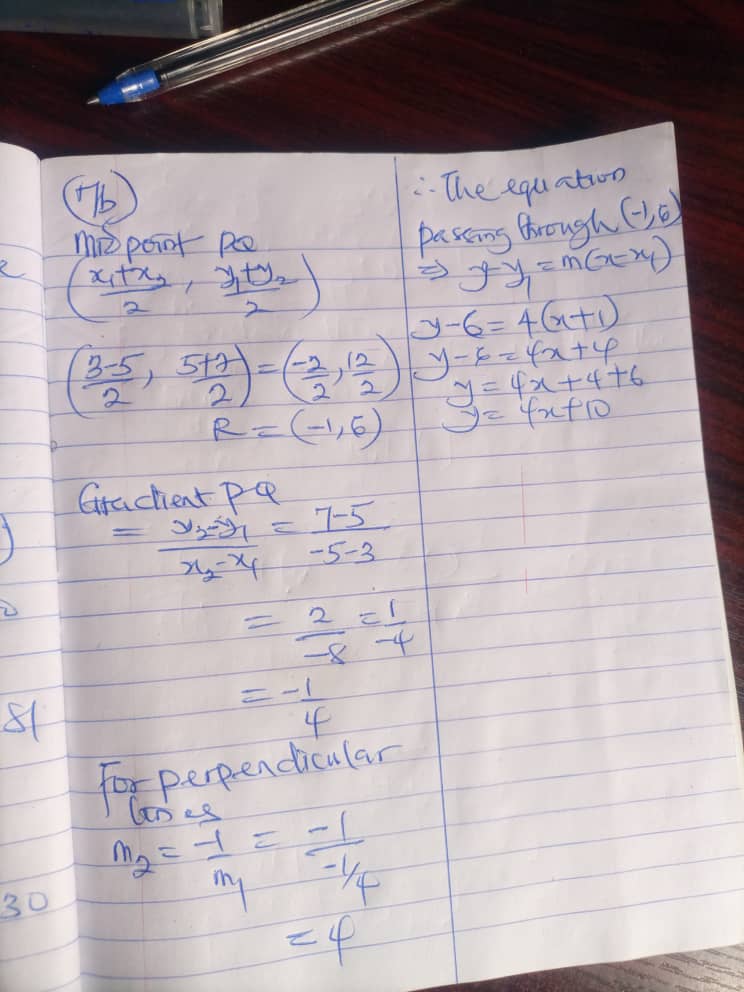 7b
Midpoint PQ
(x₁+x₂/2, y₁+y₂/2)
(3-5/2, 5+7/2) = (-2/2, 12/2)
R = (-1, 6)
Gradient PQ
= y₂-y₁/x₂-x₁ = 7-5/-5-3
= 2/-8 = 1/-4
= -1/4
For perpendicular
lines
m₂ = -1/m₁ = -1/-1/4
= 4
∴ The equation
passing through (-1, 6)
⇒ y-y₁ = m(x-x₁)
y-6 = 4(x+1)
y-6 = 4x+4
y = 4x+4+6
y = 4x+10
81
30